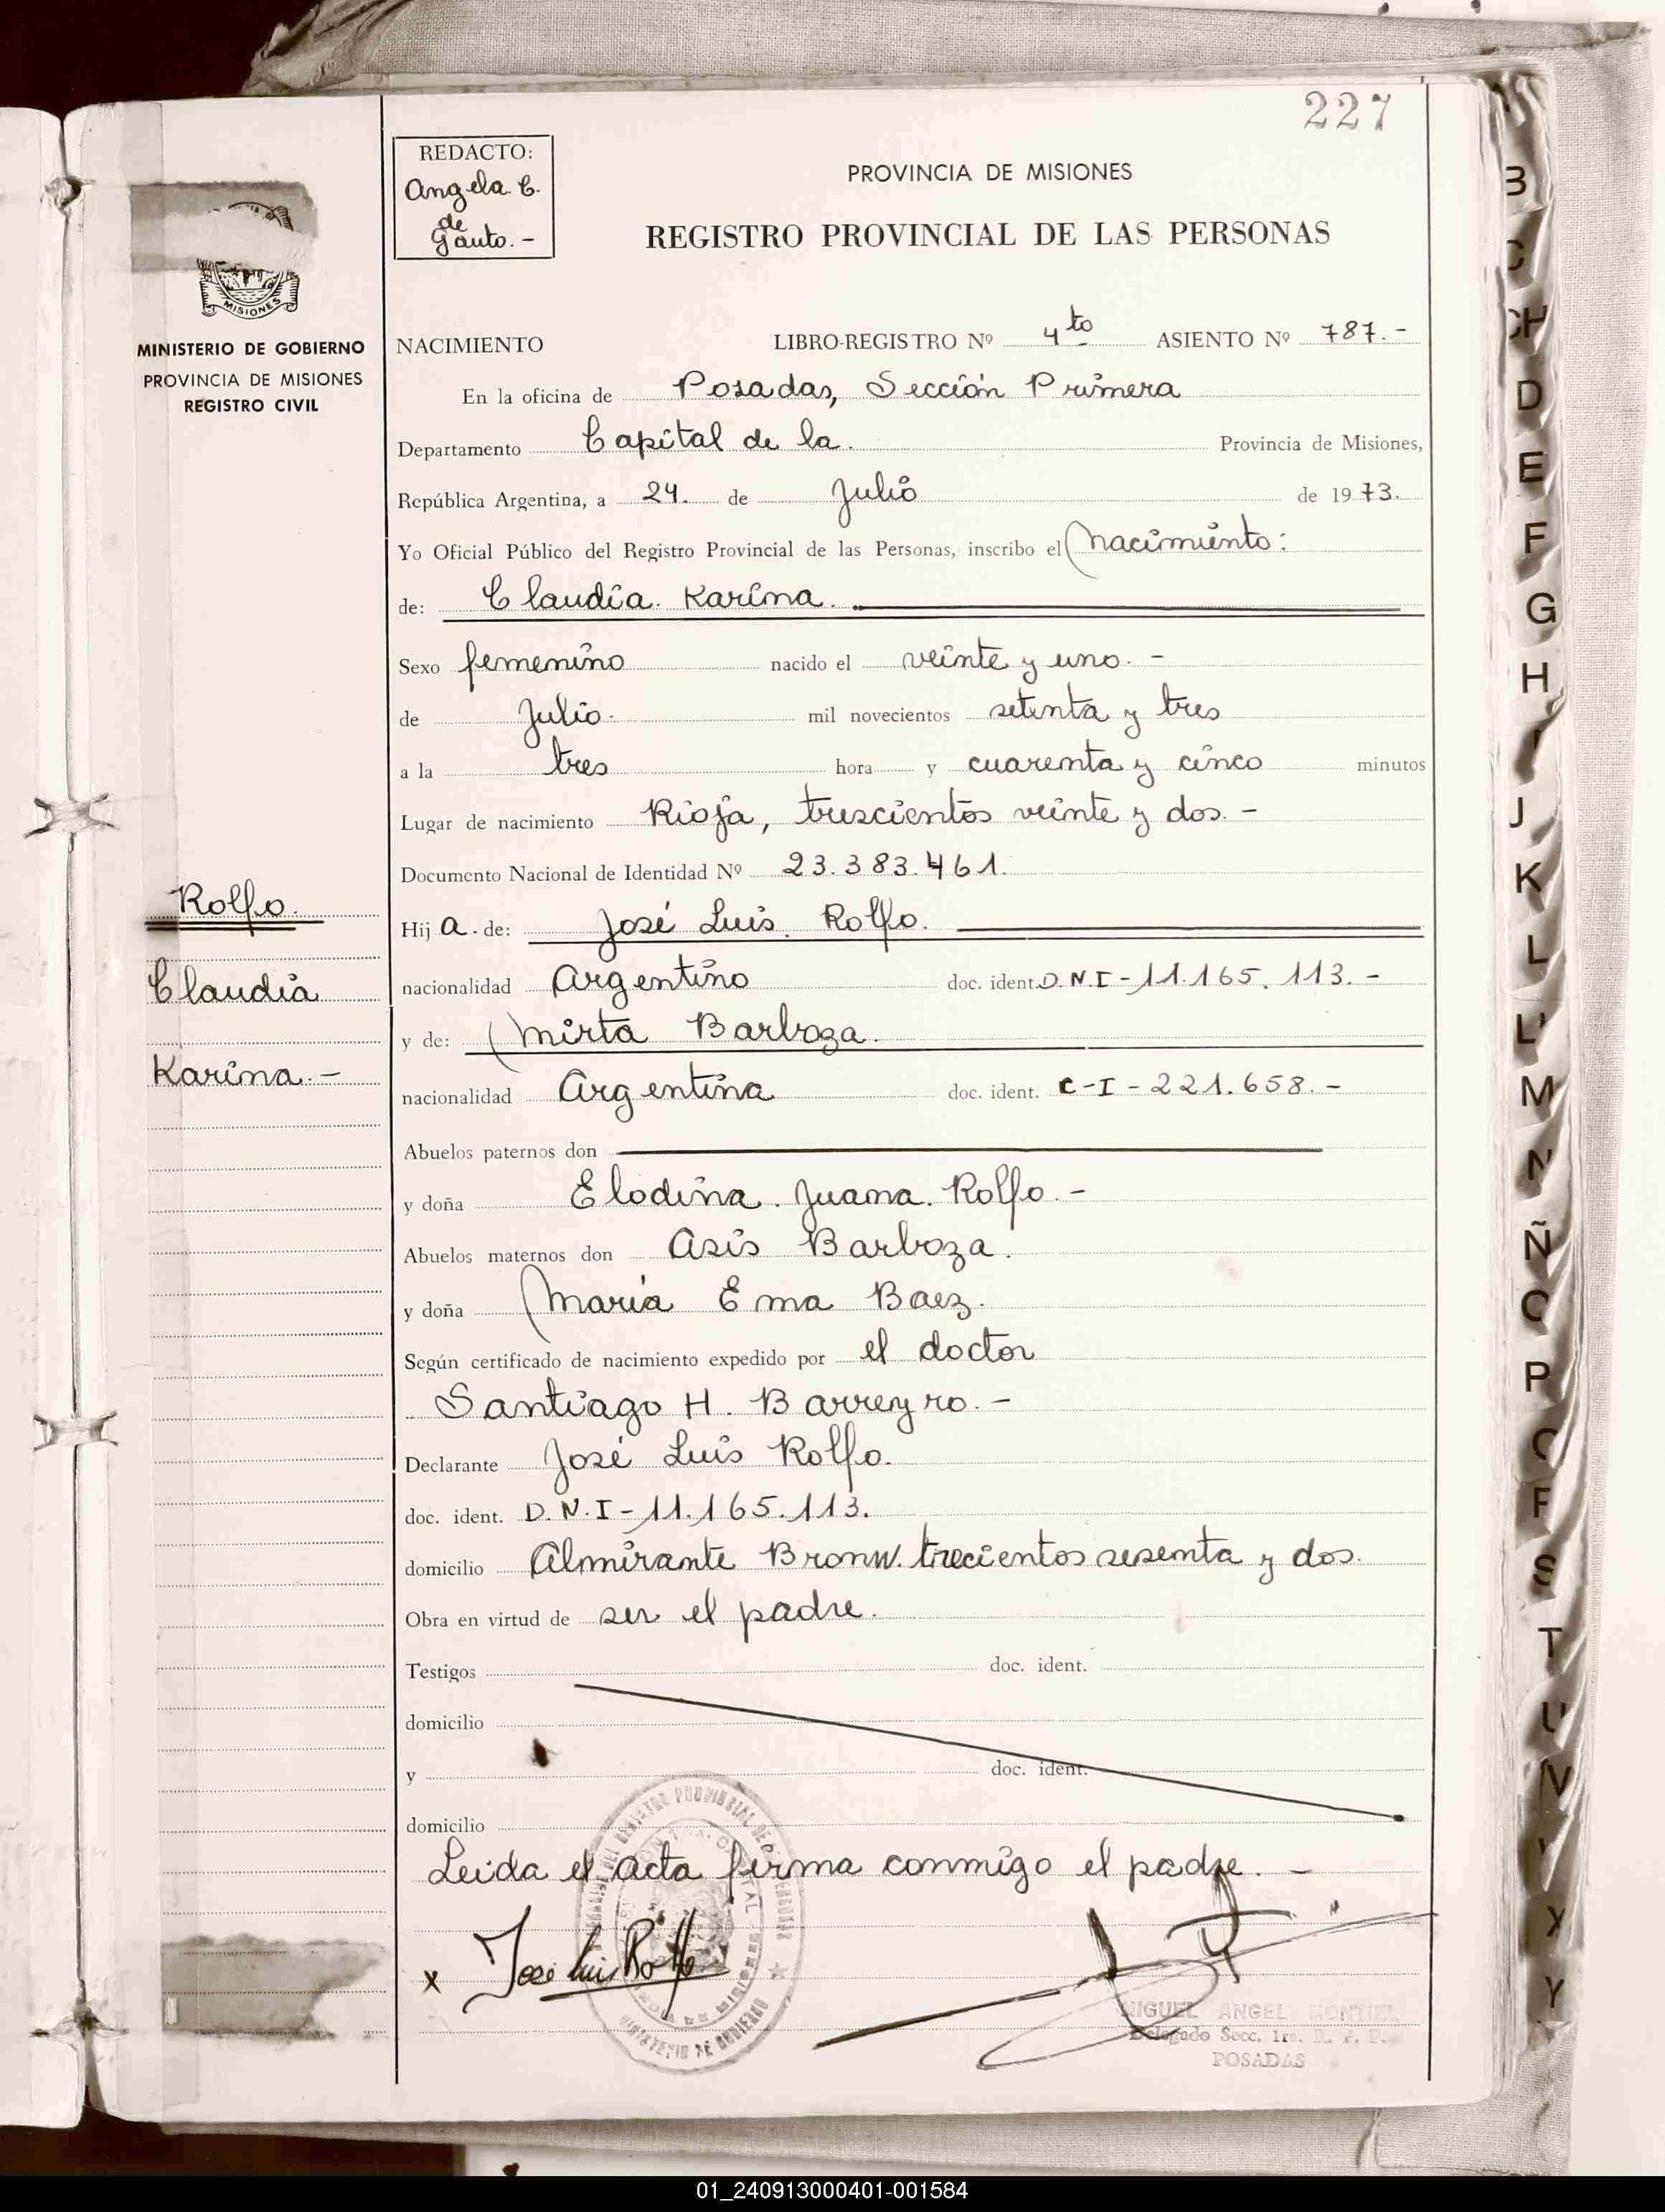 227
REDACTO:
Angela C.
de
Gauto. -
PROVINCIA DE MISIONES
REGISTRO PROVINCIAL DE LAS PERSONAS
MISIONES
MINISTERIO DE GOBIERNO
PROVINCIA DE MISIONES
REGISTRO CIVIL
NACIMIENTO LIBRO-REGISTRO Nº 4to ASIENTO Nº 787. -
En la oficina de Posadas, Sección Primera
Departamento Capital de la. Provincia de Misiones,
República Argentina, a 24. de Julio de 1973.
Yo Oficial Público del Registro Provincial de las Personas, inscribo el Nacimiento:
de: Claudia. Karina.
Sexo femenino nacido el veinte y uno. -
de Julio. mil novecientos setenta y tres
a la tres hora y cuarenta y cinco minutos
Lugar de nacimiento Rioja, trescientos veinte y dos. -
Documento Nacional de Identidad Nº 23.383.461.
Rolfo.
Claudia
Karina. -
Hija. de: José Luis. Rolfo.
nacionalidad Argentino doc. ident. D.N.I - 11.165.113. -
y de: Mirta Barboza.
nacionalidad Argentina doc. ident. C-I - 221.658. -
Abuelos paternos don
y doña Elodina. Juana. Rolfo. -
Abuelos maternos don Asis Barboza.
y doña María Ema Baez.
Según certificado de nacimiento expedido por el doctor
Santiago H. Barreyro. -
Declarante José Luis Rolfo.
doc. ident. D.N.I - 11.165.113.
domicilio Almirante Bronw. trecientos sesenta y dos.
Obra en virtud de ser el padre.
Testigos doc. ident.
domicilio
y doc. ident.
domicilio
Leida el acta firma conmigo el padre. -
x Jose Luis Rolfo
MIGUEL ANGEL MONTIEL
Delegado Secc. 1ra. R. P. P.
POSADAS
MINISTERIO DE GOBIERNO
B
C
CH
D
E
F
G
H
I
J
K
L
LL
M
N
Ñ
O
P
Q
R
S
T
U
V
X
Y
01_240913000401-001584